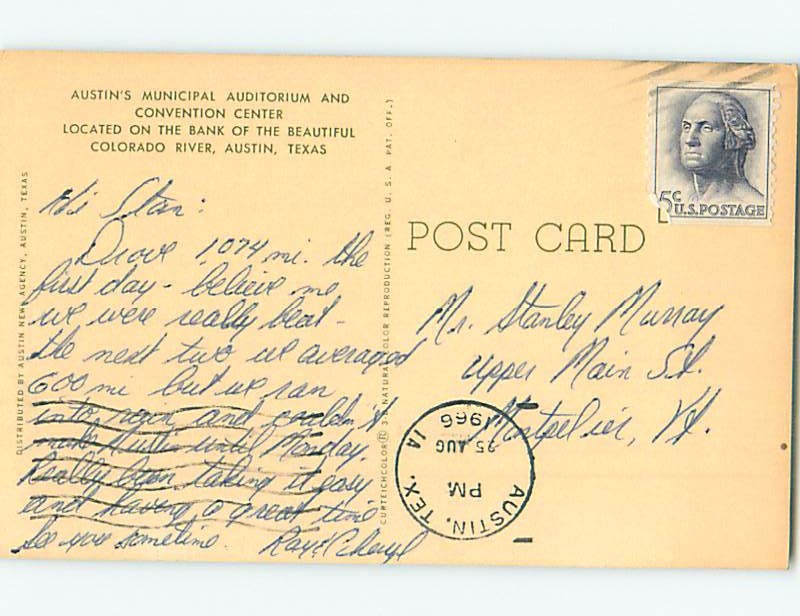 AUSTIN'S MUNICIPAL AUDITORIUM AND
CONVENTION CENTER
LOCATED ON THE BANK OF THE BEAUTIFUL
COLORADO RIVER, AUSTIN, TEXAS
Hi Stan:
Drove 1,074 mi. the
first day - believe me
we were really beat -
the next two we averaged
600 mi but we ran
into rain and couldn't
make Austin until Monday.
Really been taking it easy
and having a great time
See you sometime. Ray & Cheryl
DISTRIBUTED BY AUSTIN NEWS AGENCY, AUSTIN, TEXAS
CURTEICHCOLOR® 3-D NATURAL COLOR REPRODUCTION (REG. U. S. A. PAT. OFF.)
POST CARD
5c
U.S.POSTAGE
Mr. Stanley Murray
Upper Main St.
Montpelier, Vt.
AUSTIN, TEX.
PM
25 AUG
1966